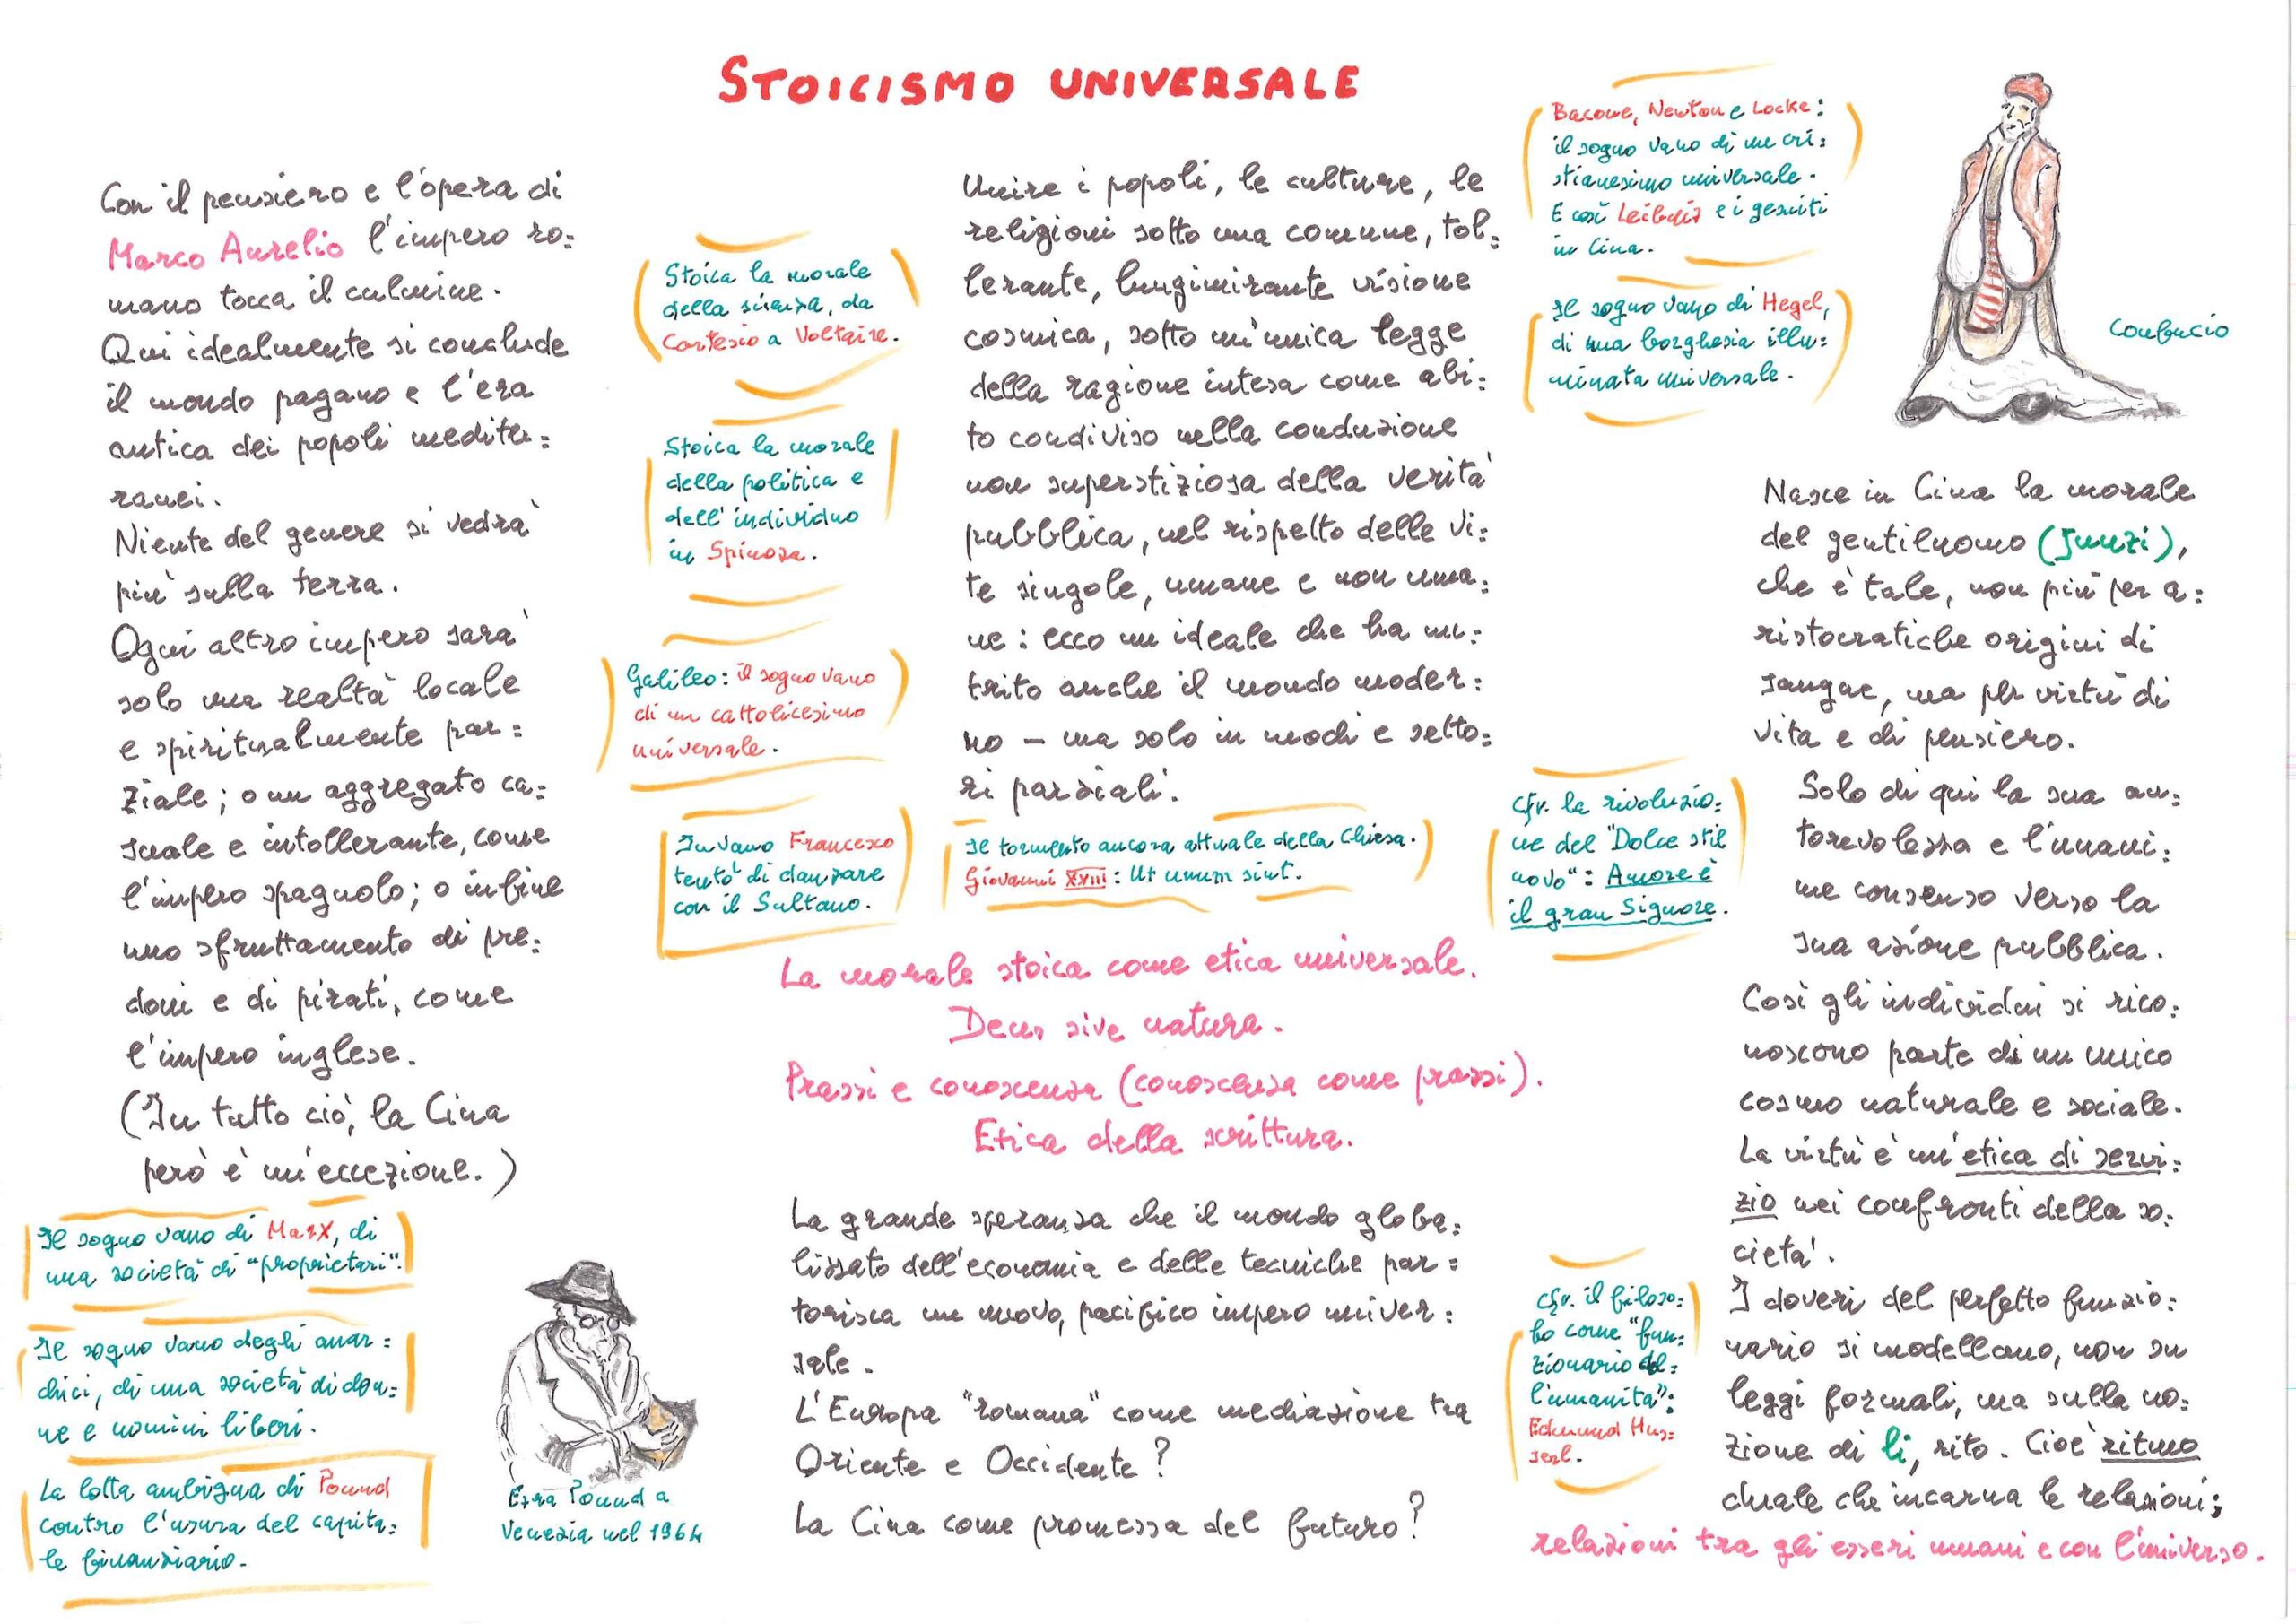 STOICISMO UNIVERSALE
Con il pensiero e l'opera di
Marco Aurelio l'impero ro=
mano tocca il culmine.
Qui idealmente si conclude
il mondo pagano e l'era
antica dei popoli mediter=
ranei.
Niente del genere si vedrà
più sulla terra.
Ogni altro impero sarà
solo una realtà locale
e spiritualmente par=
ziale; o un aggregato ca=
suale e intollerante, come
l'impero spagnolo; o infine
uno sfruttamento di pre=
doni e di pirati, come
l'impero inglese.
(In tutto ciò, la Cina
però è un'eccezione.)
Il sogno vano di Marx, di
una società di "proprietari".
Il sogno vano degli anar=
chici, di una società di don=
ne e uomini liberi.
La lotta ambigua di Pound
contro l'usura del capita=
le finanziario.
Ezra Pound a
Venezia nel 1964
Stoica la morale
della scienza, da
Cartesio a Voltaire.
Stoica la morale
della politica e
dell'individuo
in Spinoza.
Galileo: il sogno vano
di un cattolicesimo
universale.
Invano Francesco
tentò di danzare
con il Sultano.
Unire i popoli, le culture, le
religioni sotto una comune, tol=
lerante, lungimirante visione
cosmica, sotto un'unica legge
della ragione intesa come abi=
to condiviso nella conduzione
non superstiziosa della verità
pubblica, nel rispetto delle vi=
te singole, umane e non uma=
ne: ecco un ideale che ha nu=
trito anche il mondo moder=
no – ma solo in modi e setto=
ri parziali.
Il tormento ancora attuale della Chiesa.
Giovanni XXIII: Ut unum sint.
La morale stoica come etica universale.
Deus sive natura.
Prassi e conoscenza (conoscenza come prassi).
Etica della scrittura.
La grande speranza che il mondo globa=
lizzato dell'economia e delle tecniche par=
torisca un nuovo, pacifico impero univer=
sale.
L'Europa "romana" come mediazione tra
Oriente e Occidente?
La Cina come promessa del futuro?
Bacone, Newton e Locke:
il sogno vano di un cri=
stianesimo universale.
E così Leibniz e i gesuiti
in Cina.
Il sogno vano di Hegel,
di una borghesia illu=
minata universale.
Confucio
Nasce in Cina la morale
del gentiluomo (Junzi),
che è tale, non più per a=
ristocratiche origini di
sangue, ma per virtù di
vita e di pensiero.
Solo di qui la sua au=
torevolezza e l'unani=
me consenso verso la
sua azione pubblica.
Così gli individui si rico=
noscono parte di un unico
cosmo naturale e sociale.
La virtù è un'etica di servi=
zio nei confronti della so=
cietà.
I doveri del perfetto funzio=
nario si modellano, non su
leggi formali, ma sulla no=
zione di li, rito. Cioè ritmo
duale che incarna le relazioni;
relazioni tra gli esseri umani e con l'universo.
Cfr. la rivoluzio=
ne del "Dolce stil
novo": Amore è
il gran Signore.
Cfr. il filoso=
fo come "fun=
zionario del=
l'umanità":
Edmund Hus=
serl.